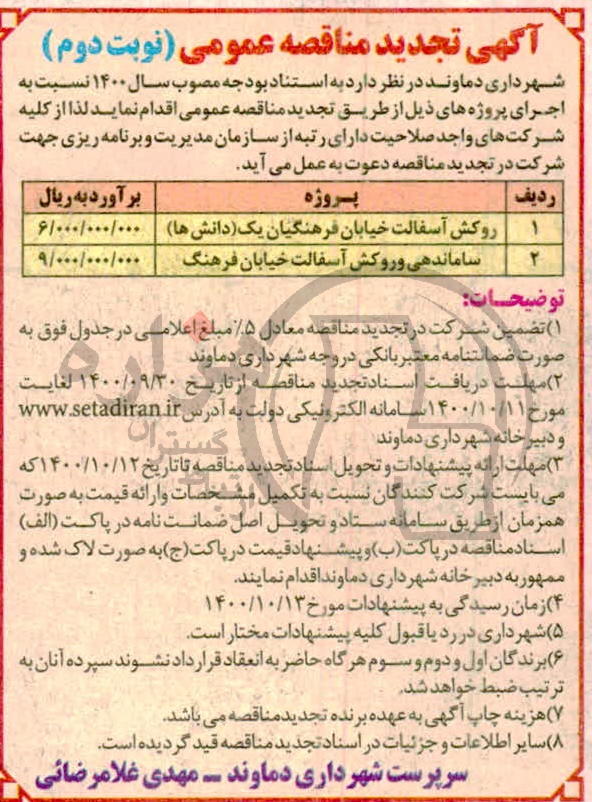 آگهی تجدید مناقصه عمومی (نوبت دوم)
شهرداری دماوند در نظر دارد به استناد بودجه مصوب سال ۱۴۰۰ نسبت به
اجرای پروژه های ذیل از طریق تجدید مناقصه عمومی اقدام نماید لذا از کلیه
شرکت‌های واجد صلاحیت دارای رتبه از سازمان مدیریت و برنامه ریزی جهت
شرکت در تجدید مناقصه دعوت به عمل می آید.
ردیف پروژه برآورد به ریال
۱ روکش آسفالت خیابان فرهنگیان یک (دانش ها) ۶/۰۰۰/۰۰۰/۰۰۰
۲ ساماندهی و روکش آسفالت خیابان فرهنگ ۹/۰۰۰/۰۰۰/۰۰۰
توضیحات:
۱) تضمین شرکت در تجدید مناقصه معادل ۵٪ مبلغ اعلامی در جدول فوق به
صورت ضمانتنامه معتبر بانکی در وجه شهرداری دماوند
۲) مهلت دریافت اسناد تجدید مناقصه از تاریخ ۱۴۰۰/۰۹/۳۰ لغایت
مورخ ۱۴۰۰/۱۰/۱۱ سامانه الکترونیکی دولت به آدرس www.setadiran.ir
و دبیرخانه شهرداری دماوند
۳) مهلت ارائه پیشنهادات و تحویل اسناد تجدید مناقصه تا تاریخ ۱۴۰۰/۱۰/۱۲ که
می بایست شرکت کنندگان نسبت به تکمیل مشخصات و ارائه قیمت به صورت
همزمان از طریق سامانه ستاد و تحویل اصل ضمانت نامه در پاکت (الف)
اسناد مناقصه در پاکت (ب) و پیشنهاد قیمت در پاکت (ج) به صورت لاک شده و
ممهور به دبیرخانه شهرداری دماوند اقدام نمایند.
۴) زمان رسیدگی به پیشنهادات مورخ ۱۴۰۰/۱۰/۱۳
۵) شهرداری در رد یا قبول کلیه پیشنهادات مختار است.
۶) برندگان اول و دوم و سوم هرگاه حاضر به انعقاد قرارداد نشوند سپرده آنان به
ترتیب ضبط خواهد شد.
۷) هزینه چاپ آگهی به عهده برنده تجدید مناقصه می باشد.
۸) سایر اطلاعات و جزئیات در اسناد تجدید مناقصه قید گردیده است.
سرپرست شهرداری دماوند – مهدی غلامرضائی